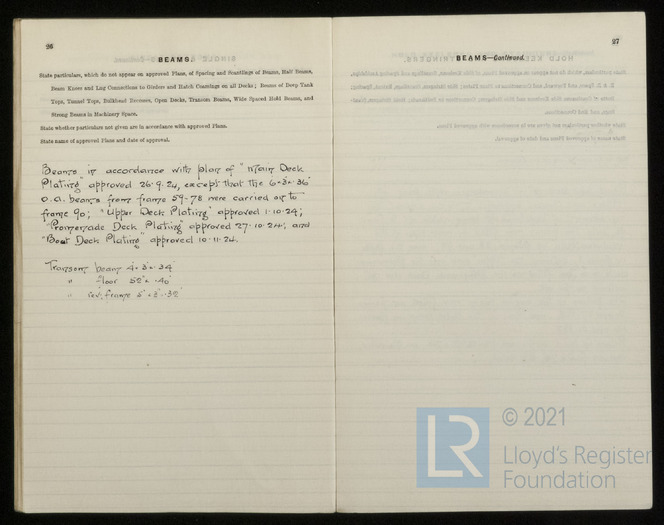 26
BEAMS.
State particulars, which do not appear on approved Plans, of Spacing and Scantlings of Beams, Half Beams,
Beam Knees and Lug Connections to Girders and Hatch Coamings on all Decks; Beams of Deep Tank
Tops, Tunnel Tops, Bulkhead Recesses, Open Decks, Transom Beams, Wide Spaced Hold Beams, and
Strong Beams in Machinery Space.
State whether particulars not given are in accordance with approved Plans.
State name of approved Plans and date of approval.
Beams in accordance with plan of "Main Deck
Plating" approved 26.9.24, except that the 6"×3"×.36"
O.A. beams from frame 59-78 were carried on to
frame 90; "Upper Deck Plating" approved 1.10.24;
"Promenade Deck Plating" approved 27.10.24; and
"Boat Deck Plating" approved 10.11.24.
Transom beam 4"×3"×.34"
" floor 52"×.40"
" rev. frame 3"×.32"
27
BEAMS—Continued.
© 2021
LR
Lloyd's Register
Foundation